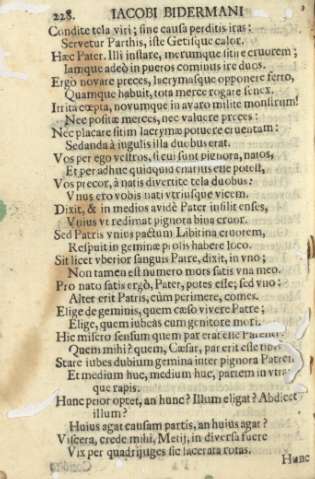 228. IACOBI BIDERMANI
Condite tela viri; sine causa perditis iras:
Servetur Parthis, iste Getisque calor.
Hæc Pater. Illi instare, merumque sitire cruorem;
Iamque adeò in pueros cominus ire duos.
Ergò novare preces, lacrymasque opponere ferro,
Quamque habuit, tota merce rogare senex.
Irrita cœpta, novumque in avaro milite monstrum!
Nec positæ merces, nec valuere preces:
Nec placare sitim lacrymæ potuere cruentam:
Sedanda à iugulis illa duobus erat.
Vos per ego vestros, si cui sunt pignora, natos,
Et per adhuc quidquid charius esse potest,
Vos precor, à natis divertite tela duobus:
Unus ero vobis nati utriusque vicem.
Dixit, & in medios avidè Pater insilit enses,
Unius ut redimat pignora bina cruor.
Sed Patris unius pactum Libitina cruorem,
Respuit in geminæ prolis habere loco.
Sit licet uberior sanguis Patre, dixit, in uno;
Non tamen est numero mors satis una meo.
Pro nato satis ergò, Pater, potes esse; sed uno:
Alter erit Patris, cùm perimere, comes.
Elige de geminis, quem cæso vivere Patre;
Elige, quem iubeas cum genitore mori.
Hic misero sensum quem par erat esse Parenti?
Quem mihi? quem, Cæsar, par erit esse tibi?
Stare iubes dubium gemina inter pignora Patrem
Et medium huc, medium huc, partem in utram-
que rapis.
Hunc prior optet, an hunc? Illum eligat? Abdicet
illum?
Huius agat causam partis, an huius agat?
Viscera, crede mihi, Metij, in diversa fuere
Vix per quadrijuges sic lacerata rotas.
Hunc